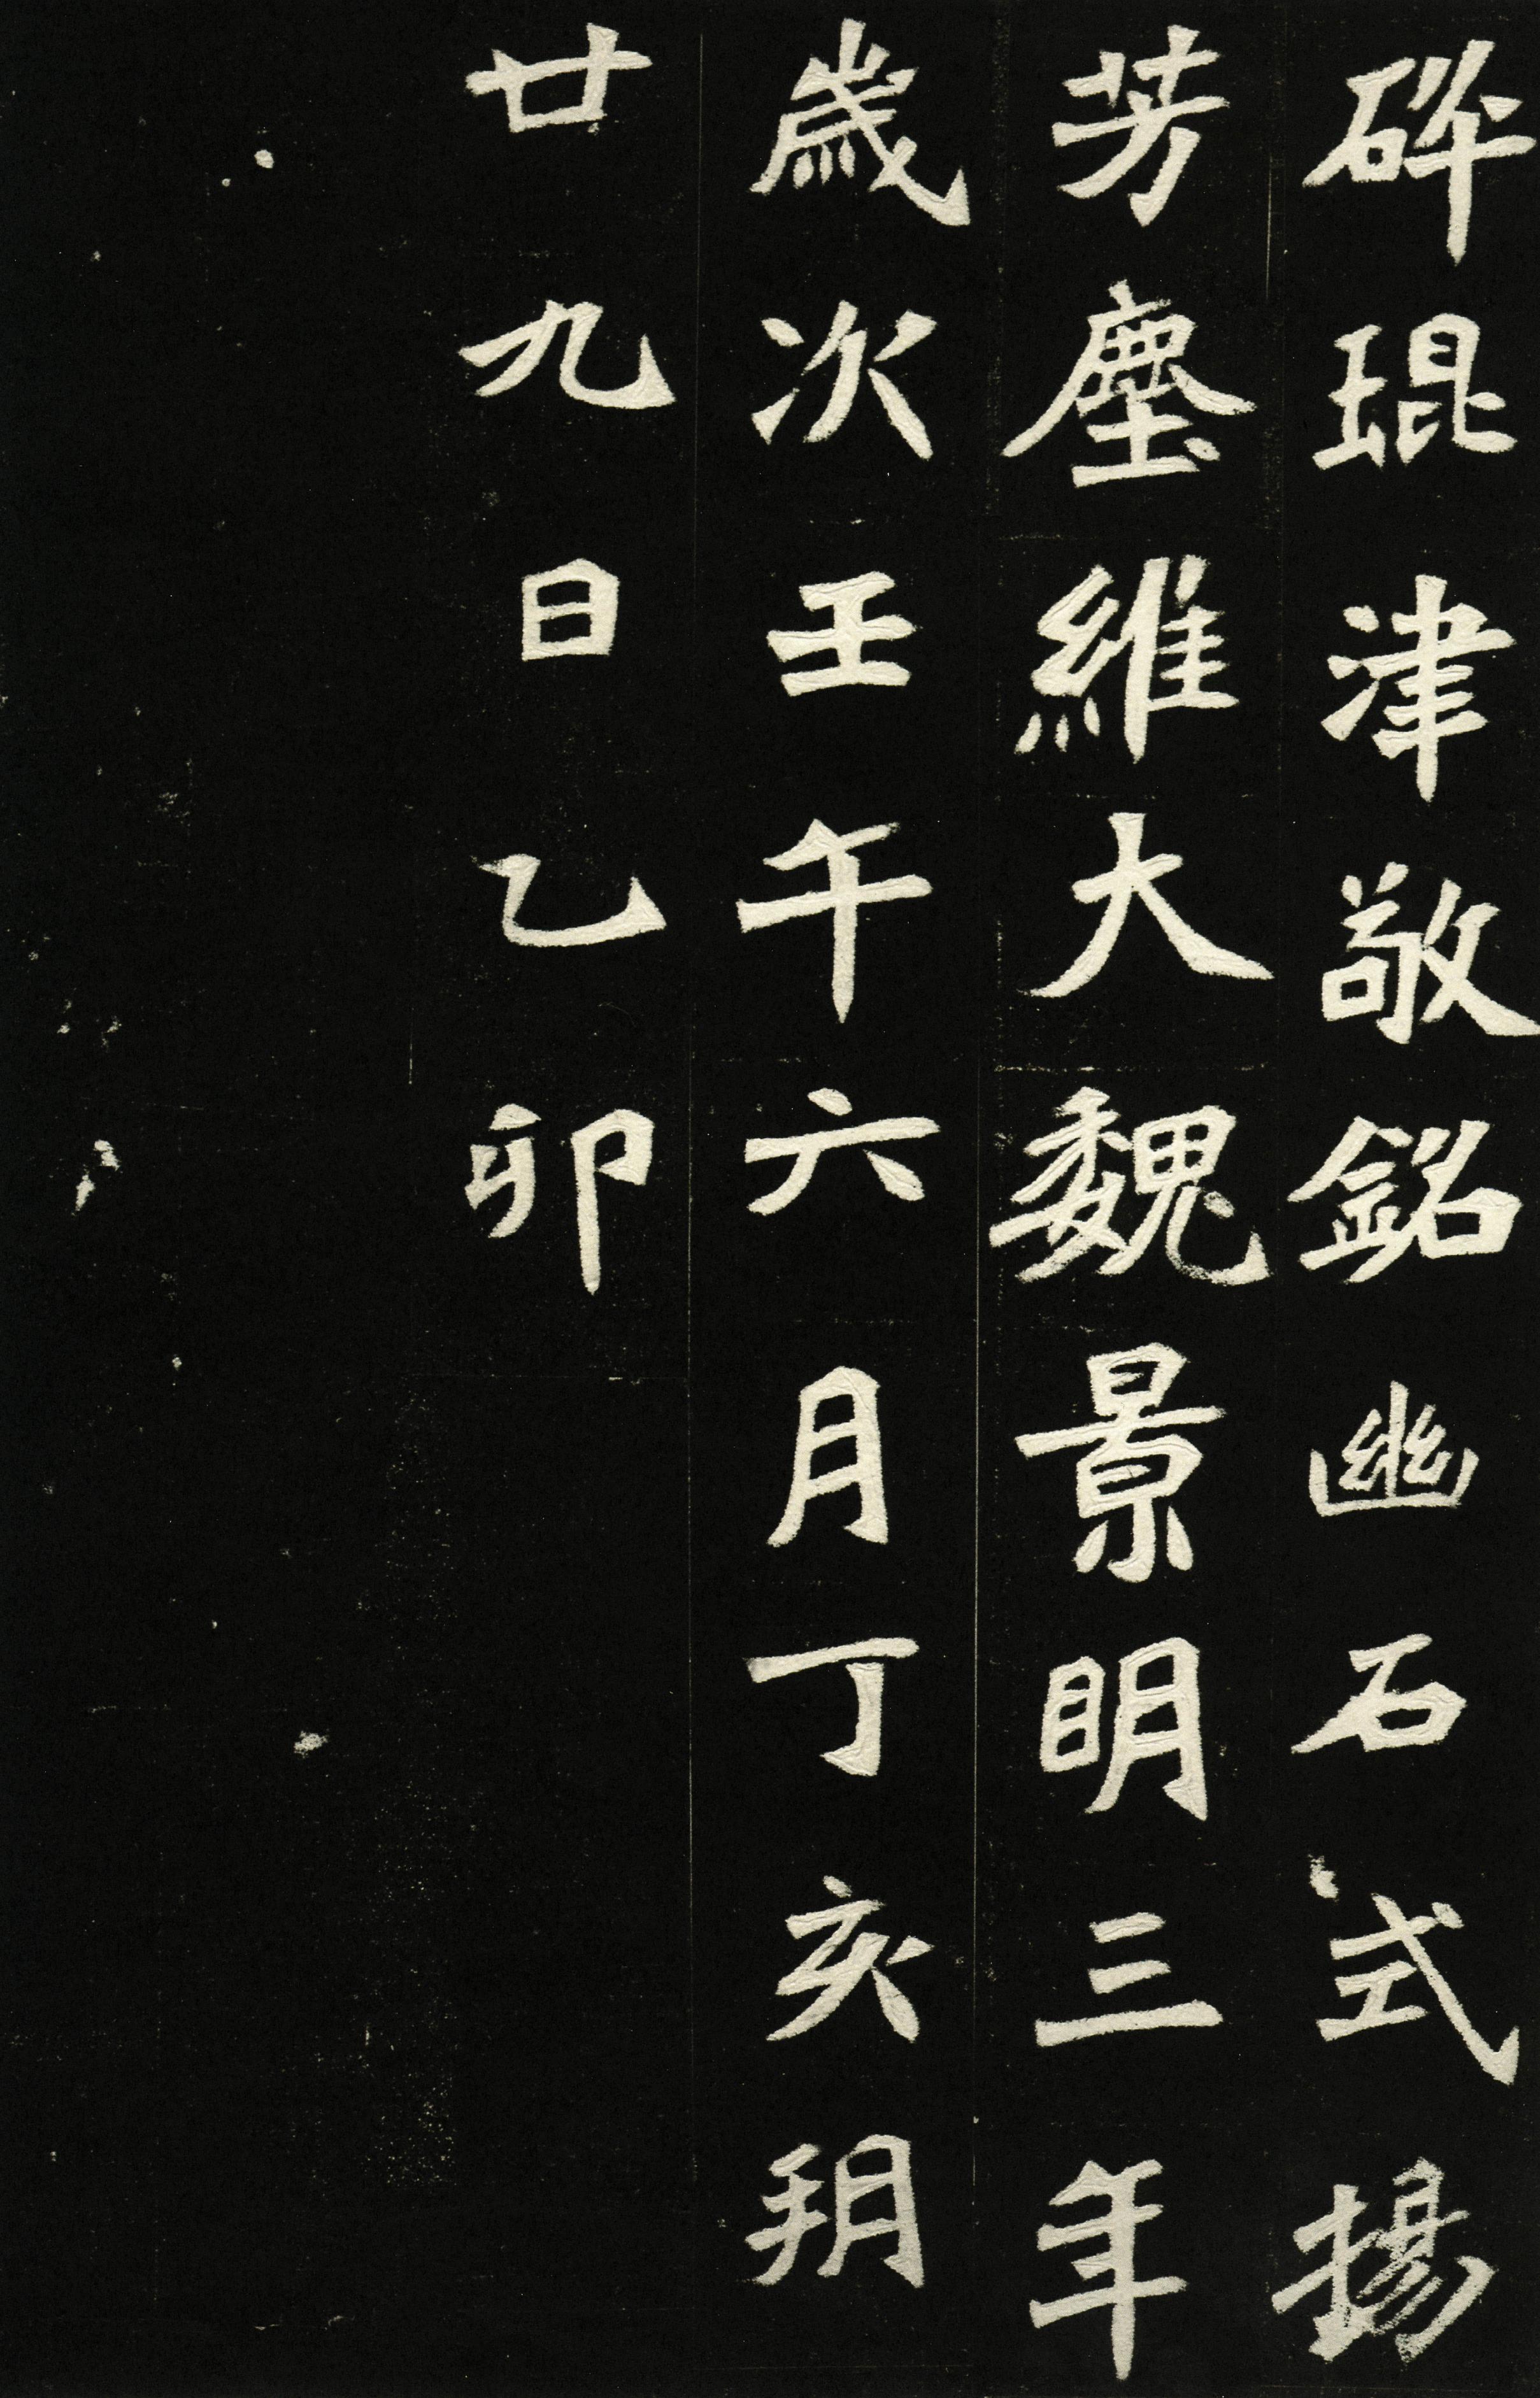 砕琨津敬銘幽石式揚
芳塵維大魏景明三年
歲次壬午六月丁亥朔
廿九日乙卯